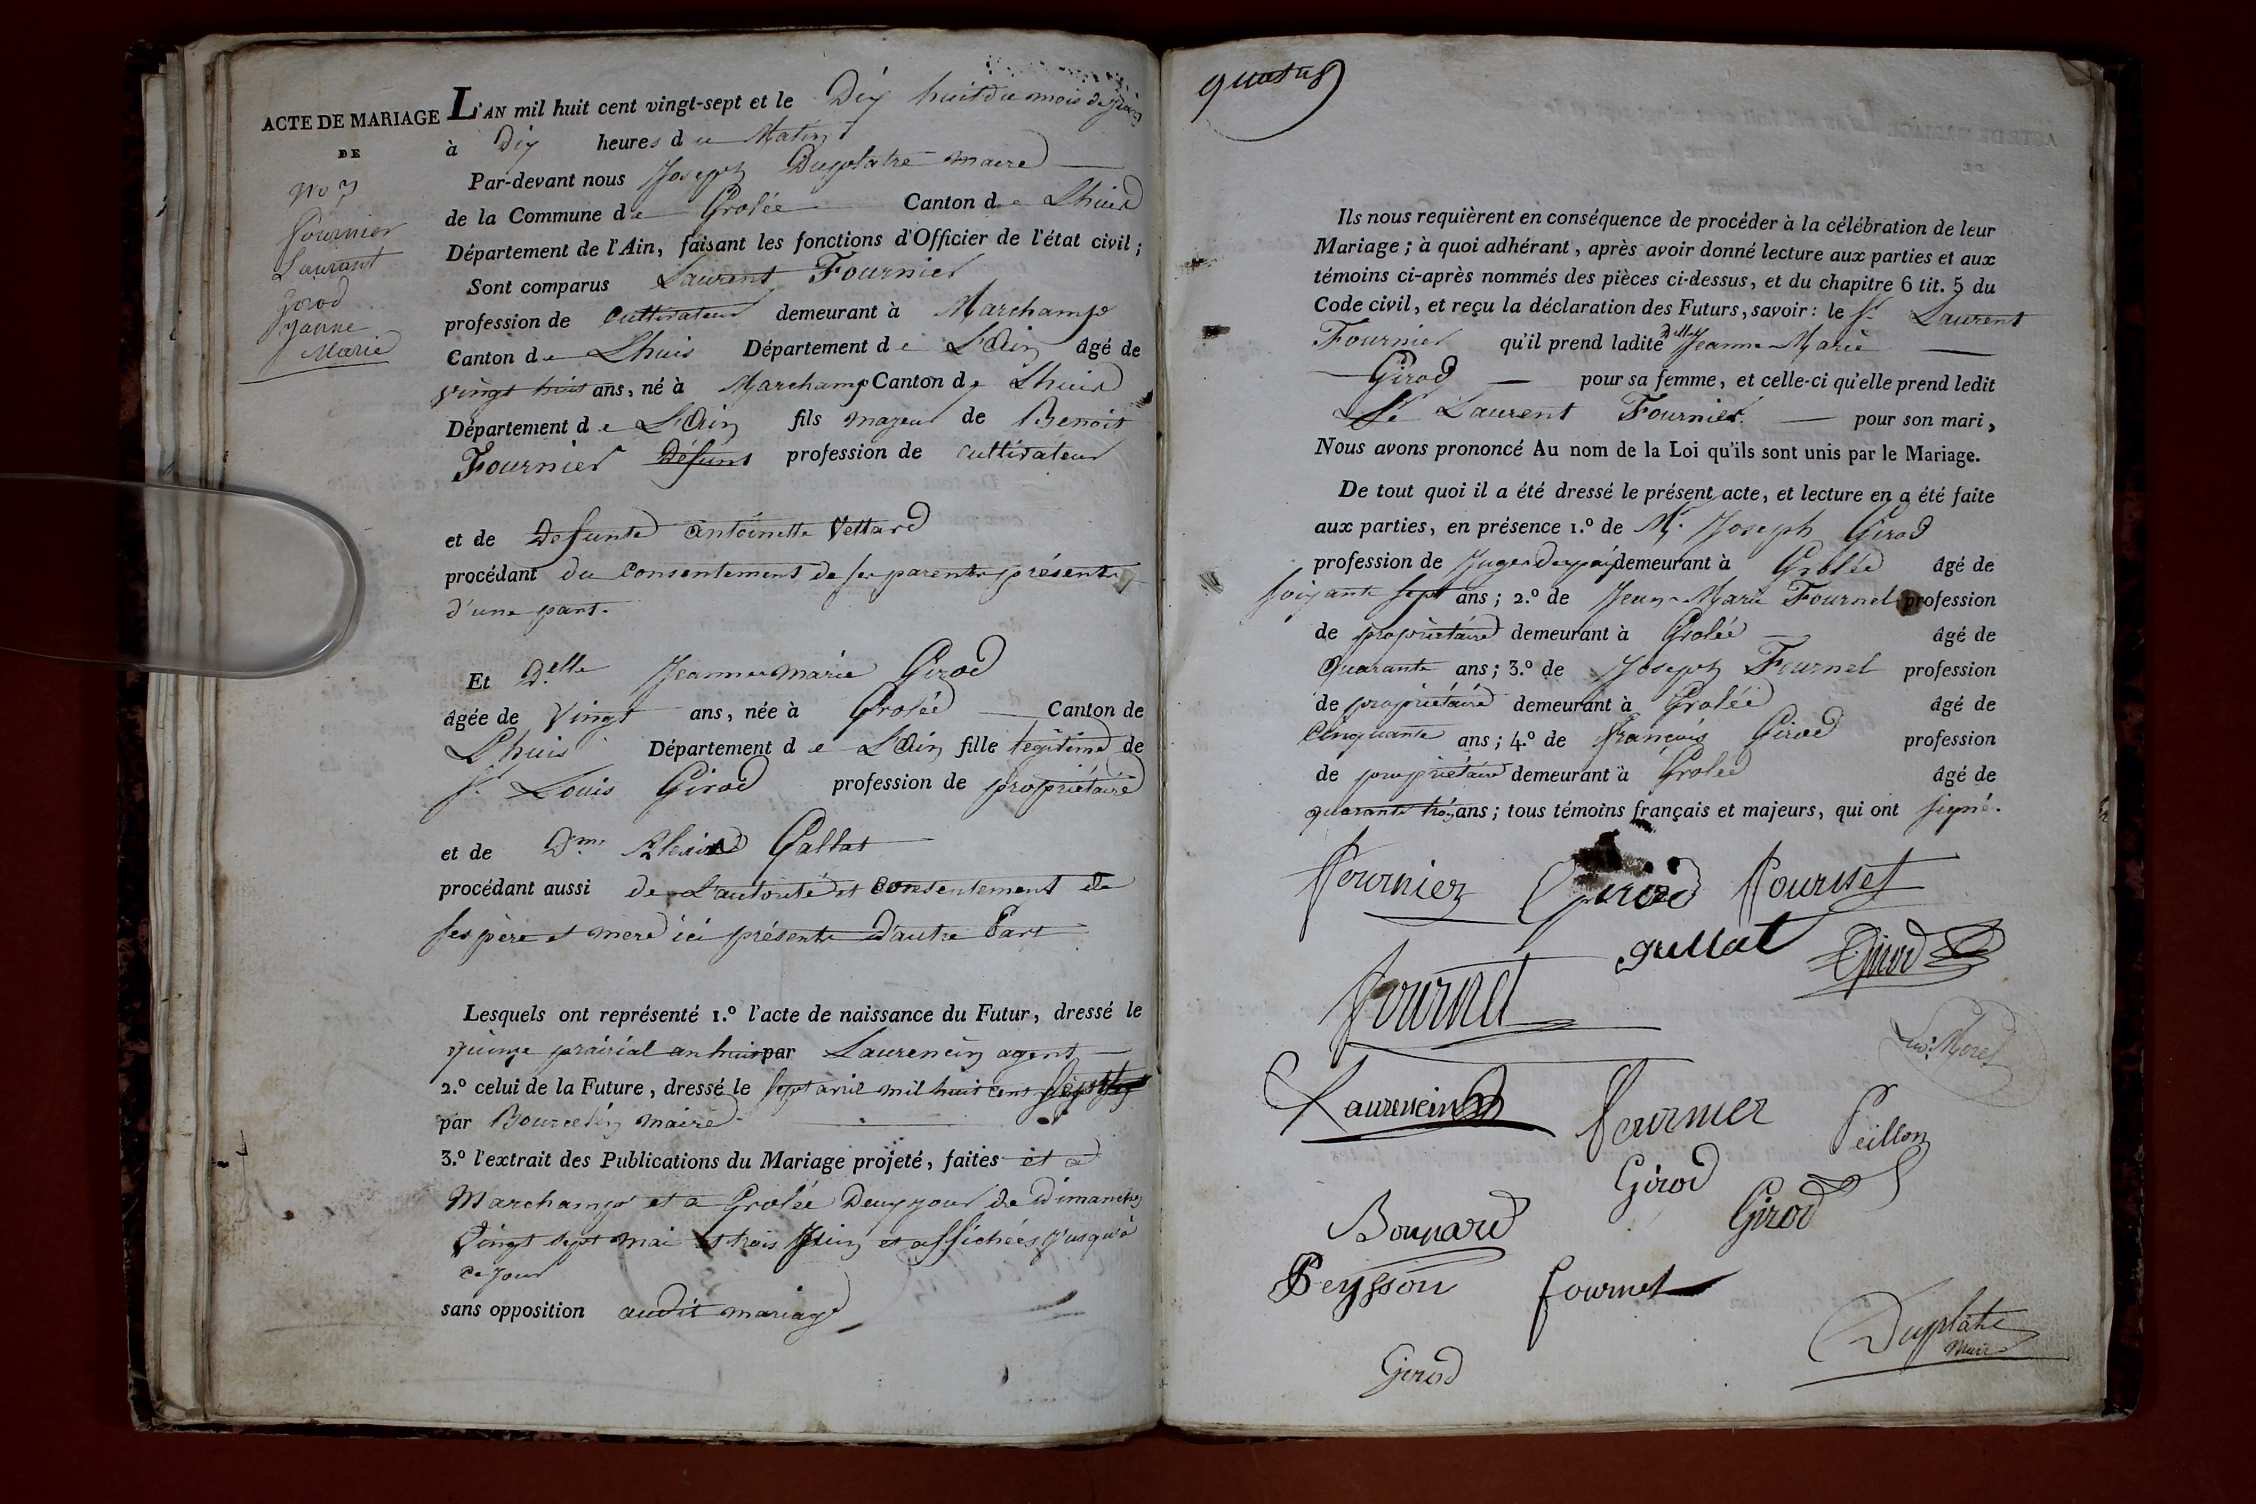 ACTE DE MARIAGE
DE
No 7
Fournier
Laurant
Girod
Jeanne
Marie
L'AN mil huit cent vingt-sept et le Dix huit du mois de juin
à Dix heures du Matin
Par-devant nous Joseph Duplatre maire
de la Commune de Grolée Canton de Lhuis
Département de l'Ain, faisant les fonctions d'Officier de l'état civil;
Sont comparus Laurant Fournier
profession de Cultivateur demeurant à Marchamp
Canton de Lhuis Département de L'Ain âgé de
vingt huit ans, né à Marchamp Canton de Lhuis
Département de L'Ain fils majeur de Benoit
Fournier Défunt profession de cultivateur
et de Defunte antoinette Vettard
procédant du Consentement de ses parents présents
d'une part.
Et D.elle Jeanne marie Girod
âgée de Vingt ans, née à Grolée Canton de
Lhuis Département de L'Ain fille légitime de
Sr. Louis Girod profession de propriétaire
et de Dme. Gallat
procédant aussi de L'autorité et consentement de
ses père et mere ici présents d'autre Part
Lesquels ont représenté 1.º l'acte de naissance du Futur, dressé le
quinze prairial an huit par Laurencin agent
2.º celui de la Future, dressé le sept avril mil huit cent sept
par Bourcelin maire
3.º l'extrait des Publications du Mariage projeté, faites et a
Marchamp et a Grolée Deux jour de Dimanche
Vingt sept mai et trois Juin et affichées jusqu'à
ce jour
sans opposition audit mariage
Ils nous requièrent en conséquence de procéder à la célébration de leur
Mariage; à quoi adhérant, après avoir donné lecture aux parties et aux
témoins ci-après nommés des pièces ci-dessus, et du chapitre 6 tit. 5 du
Code civil, et reçu la déclaration des Futurs, savoir: le Sr. Laurent
Fournier qu'il prend ladite Delle Jeanne-Marie
Girod pour sa femme, et celle-ci qu'elle prend ledit
Sr Laurent Fournier pour son mari,
Nous avons prononcé Au nom de la Loi qu'ils sont unis par le Mariage.
De tout quoi il a été dressé le présent acte, et lecture en a été faite
aux parties, en présence 1.º de Mr. Joseph Girod
profession de Juge De paix demeurant à Grolée âgé de
soixante sept ans; 2.º de Jean-Marie Fournet profession
de propriétaire demeurant à Grolée âgé de
Quarante ans; 3.º de Joseph Fournet profession
de propriétaire demeurant à Grolée âgé de
Cinquante ans; 4.º de françois Girod profession
de propriétaire demeurant à Grolée âgé de
quarante trois ans; tous témoins français et majeurs, qui ont signé.
Fournier Girod Fournet
gallat Girod
Fournet
Laurencin Fournier Peillon
Girod
Bonnard Girod
Peysson fournet
Duplatre
Maire
Girod